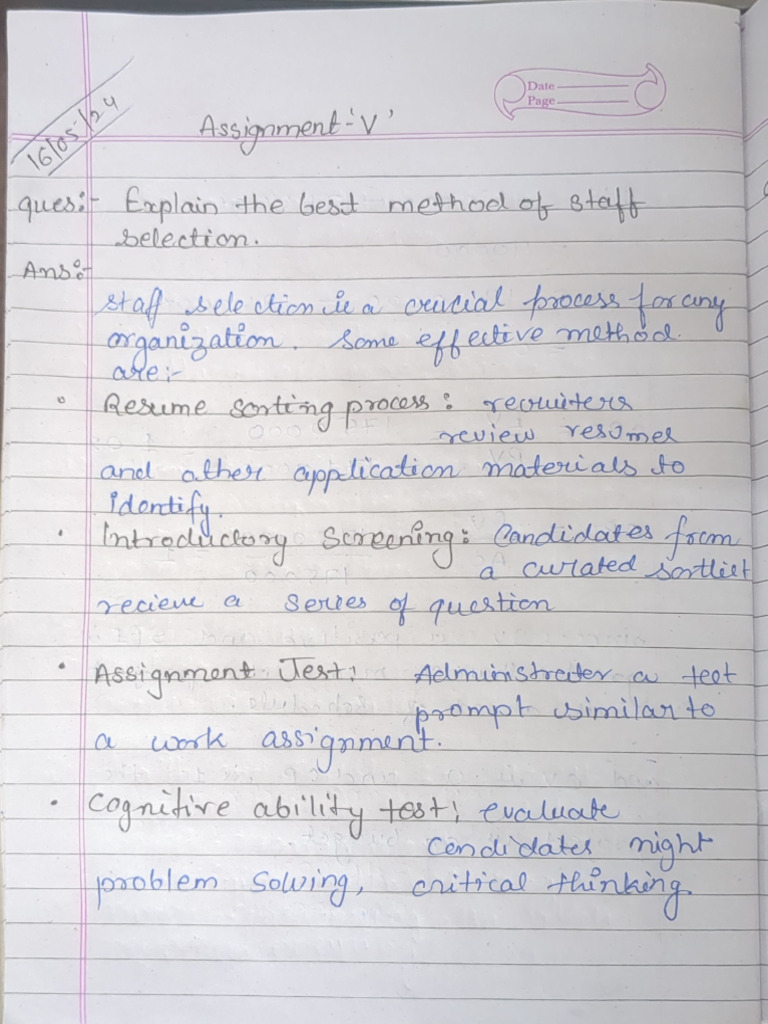 Date
Page
16/05/24
Assignment-'V'
Ques:- Explain the best method of staff
selection.
Ans:-
Staff selection is a crucial process for any
organization. Some effective method
are:-
• Resume sorting process: recruiters
review resumes
and other application materials to
identify.
• Introductory Screening: Candidates from
a curated sortlist
recieve a series of question
• Assignment Test: Administrater a test
prompt similar to
a work assignment.
• Cognitive ability test: evaluate
candidates night
problem solving, critical thinking.